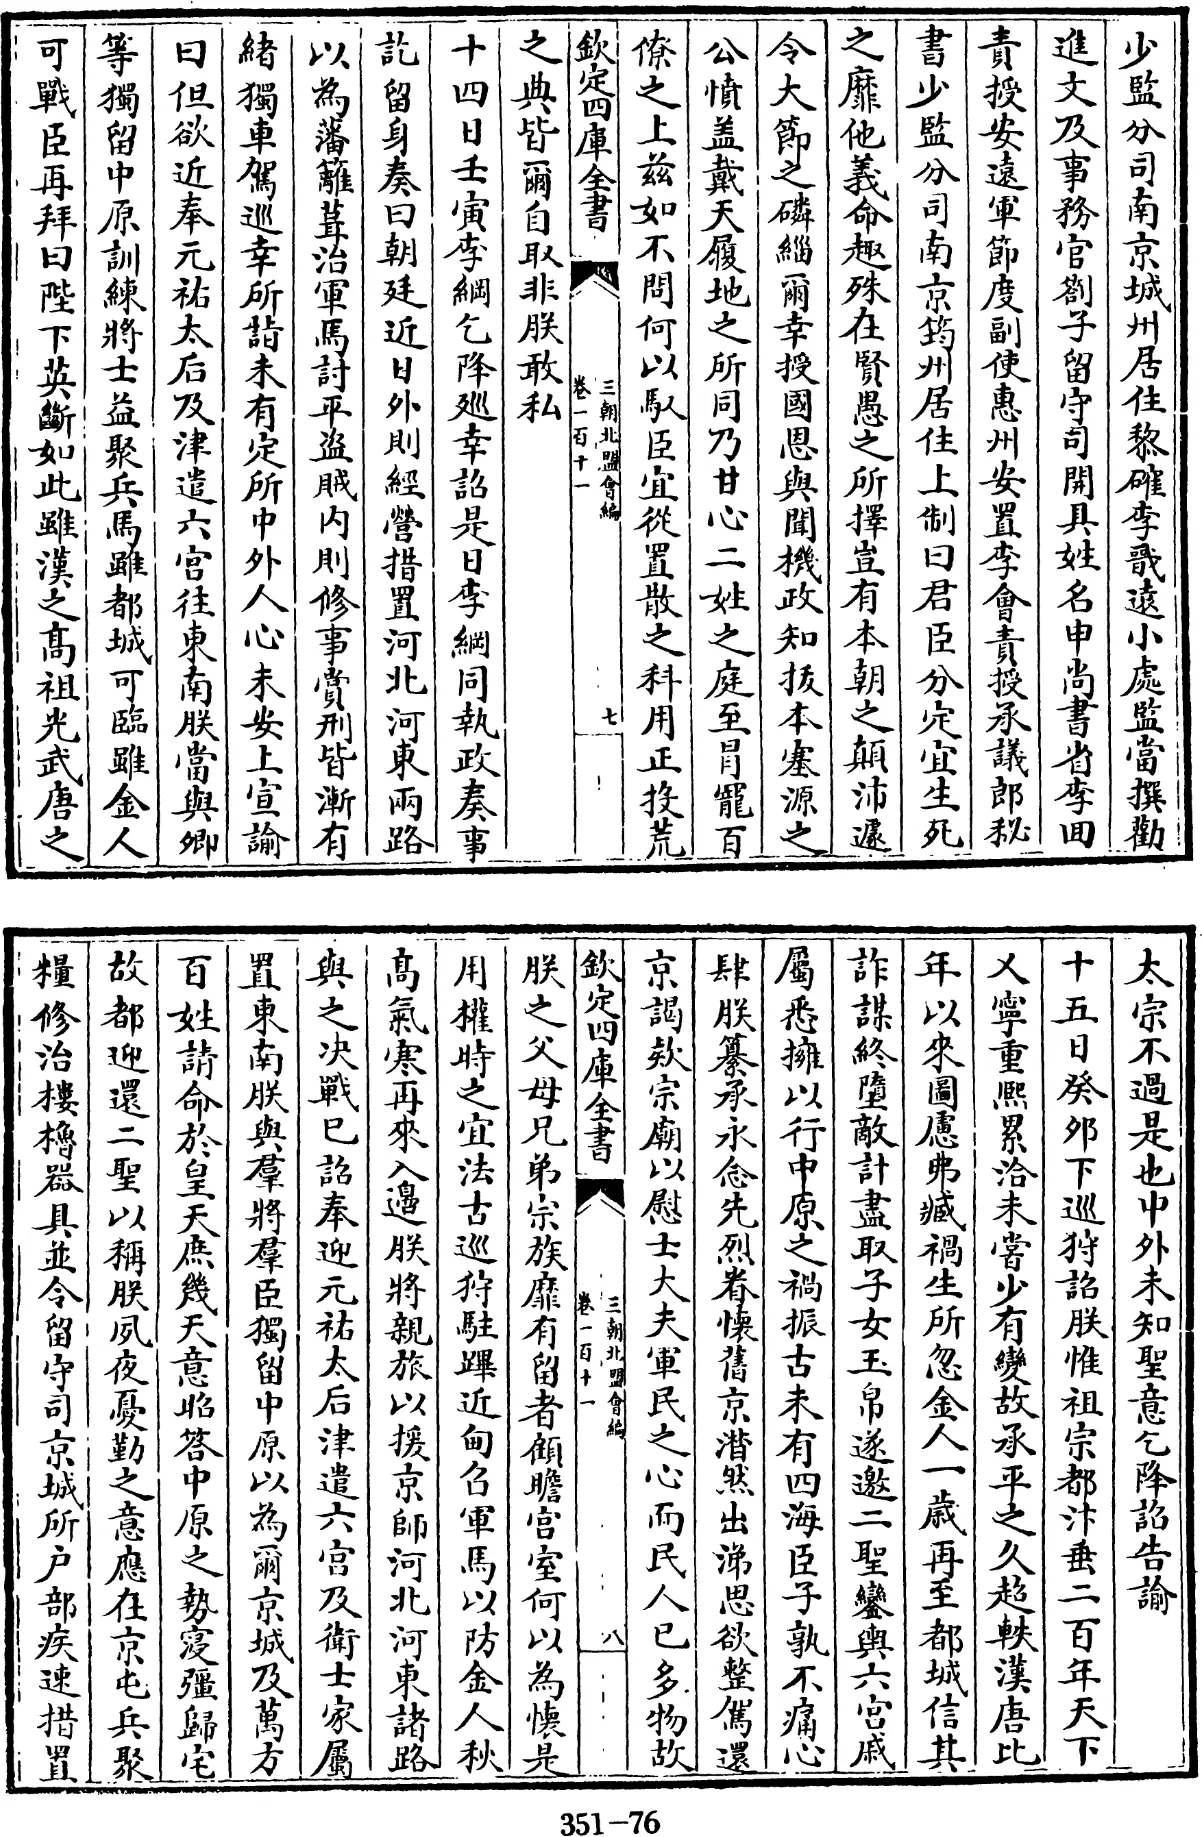 少監分司南京城州居住黎確李㦲逺小處監當撰勸
進文及事務官劄子留守司開具姓名申尚書省李回
責授安逺軍節度副使惠州安置李會責授承議郎秘
書少監分司南京筠州居住上制曰君臣分定宜生死
之靡他義命趣殊在賢愚之所擇豈有本朝之顛沛遽
令大節之磷緇爾幸授國恩與聞機政知拔本塞源之
公憤盖戴天履地之所同乃甘心二姓之庭至冐寵百
僚之上兹如不問何以馭臣宜從置散之科用正投荒
欽定四庫全書
三朝北盟會編
卷一百十一
七
之典皆爾自取非朕敢私
十四日壬寅李綱乞降廵幸詔是日李綱同執政奏事
訖留身奏曰朝廷近日外則經營措置河北河東兩路
以為藩籬葺治軍馬討平盗賊内則修事賞刑皆漸有
緒獨車駕巡幸所詣未有定所中外人心未安上宣諭
曰但欲近奉元祐太后及津遣六宫往東南朕當與卿
等獨留中原訓練將士益聚兵馬雖都城可臨雖金人
可戰臣再拜曰陛下英斷如此雖漢之髙祖光武唐之
太宗不過是也中外未知聖意乞降詔告諭
十五日癸夘下巡狩詔朕惟祖宗都汴垂二百年天下
乂寧重熈累洽未嘗少有變故承平之久超軼漢唐比
年以來圖慮弗臧禍生所忽金人一歲再至都城信其
詐謀終墮敵計盡取子女玉帛遂邀二聖鑾輿六宫戚
屬悉擁以行中原之禍振古未有四海臣子孰不痛心
肆朕纂承永念先烈眷懷舊京潸然出涕思欲整駕還
京謁欵宗廟以慰士大夫軍民之心而民人已多物故
欽定四庫全書
三朝北盟會編
卷一百十一
八
朕之父母兄弟宗族靡有留者顧瞻宫室何以為懷是
用權時之宜法古巡狩駐蹕近甸召軍馬以防金人秋
髙氣寒再來入邉朕將親旅以援京師河北河東諸路
與之决戰已詔奉迎元祐太后津遣六宫及衛士家屬
置東南朕與羣將羣臣獨留中原以為爾京城及萬方
百姓請命於皇天庶幾天意昭答中原之勢寖彊歸宅
故都迎還二聖以稱朕夙夜憂勤之意應在京屯兵聚
糧修治樓櫓器具並令留守司京城所户部疾速措置
351-76